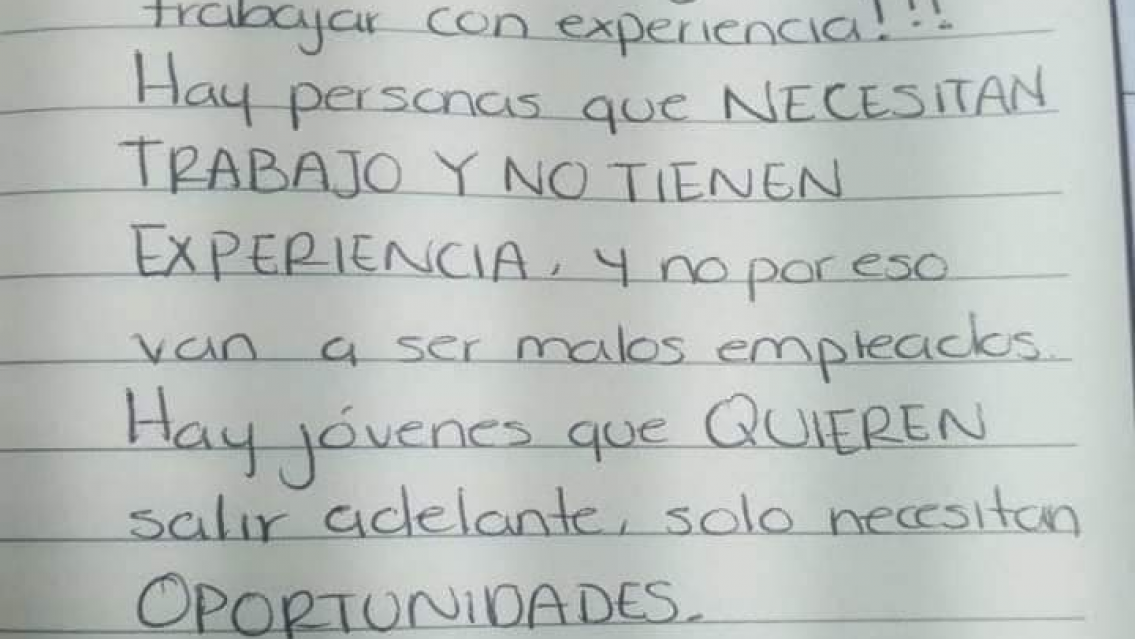 trabajar con experiencia!!!
Hay personas que NECESITAN
TRABAJO Y NO TIENEN
EXPERIENCIA, y no por eso
van a ser malos empleados.
Hay jóvenes que QUIEREN
salir adelante, solo necesitan
OPORTUNIDADES.